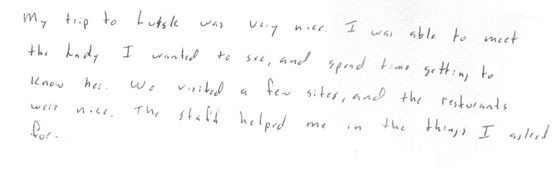 My trip to Lutsk was very nice. I was able to meet
the lady I wanted to see, and spend time getting to
know her. We visited a few sites, and the resturants
were nice. The staff helped me in the things I asked
for.